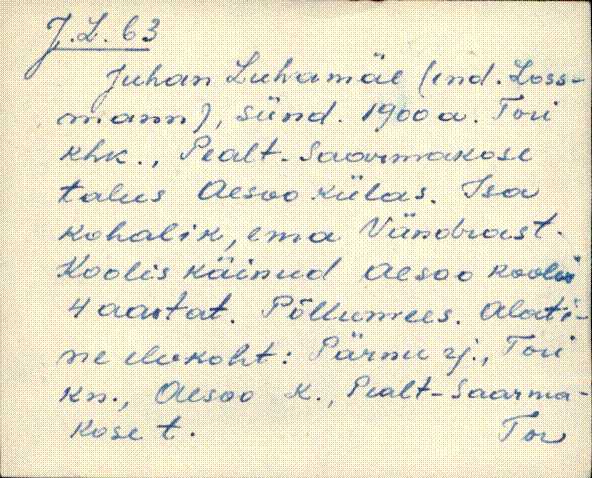 J.L. 63
Juhan Luhamäe (end. Loss-
mann), sünd. 1900 a. Tori
khk., Pealt-Saarmakose
talus Aesoo külas. Isa
kohalik, ema Vändrast.
Koolis käinud Aesoo koolis
4 aastat. Põllumees. Alati-
ne elukoht: Pärnu rj., Tori
kn., Aesoo k., Pealt-Saarma-
kose t. Tor